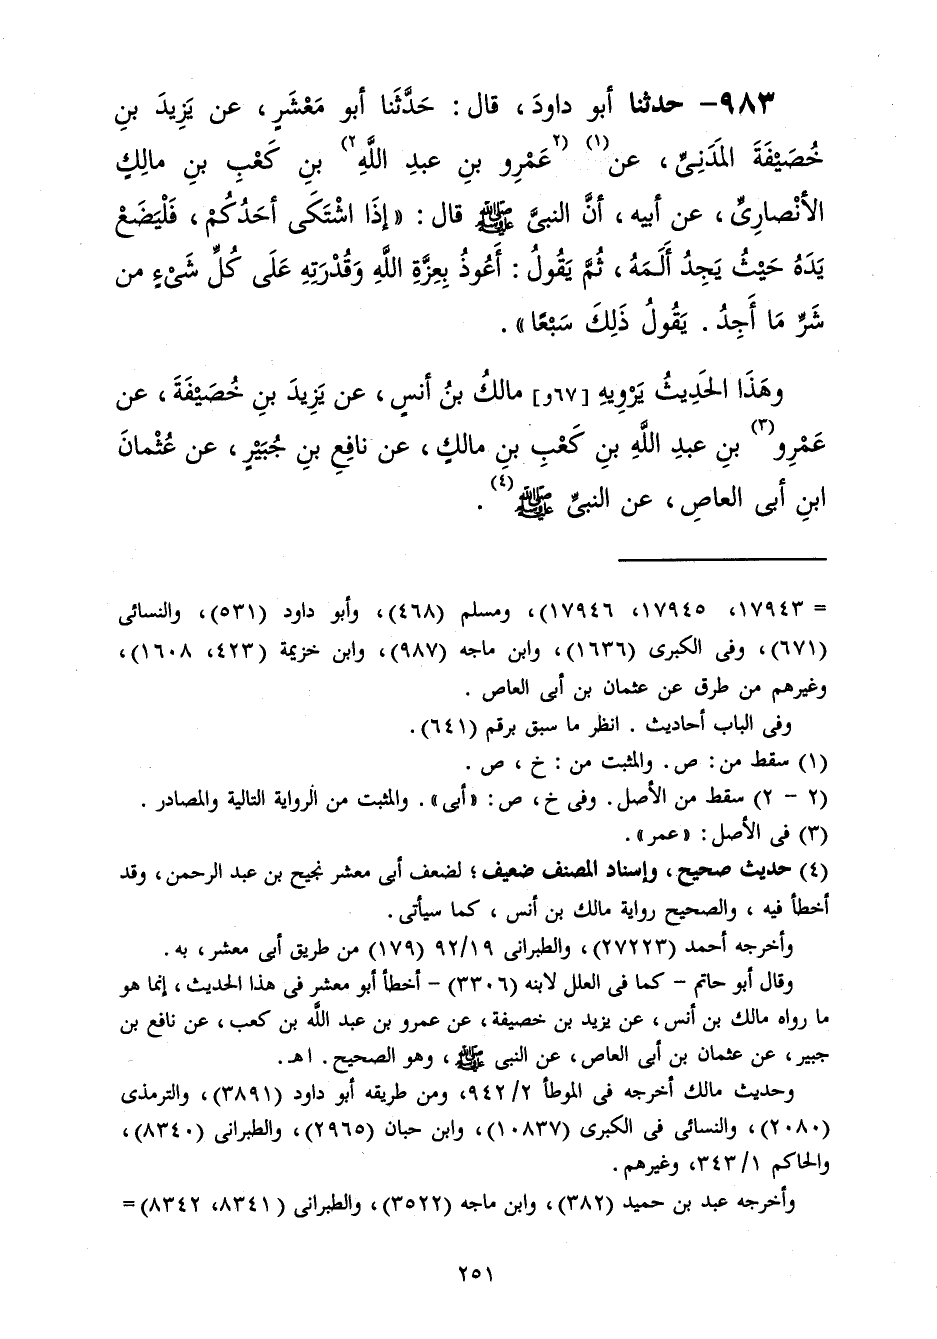 ٩٨٣- حدثنا أبو داودَ، قال: حَدَّثَنا أبو مَعْشَرٍ، عن يَزِيدَ بنِ
خُصَيْفَةَ المَدَنِىِّ، عن(١) (٢عَمْرِو بنِ عبدِ اللَّهِ٢) بنِ كَعْبِ بنِ مالِكٍ
الأنْصارِىِّ، عن أبيه، أنَّ النبىَّ ﷺ قال: «إذَا اشْتَكَى أحَدُكُمْ، فَلْيَضَعْ
يَدَهُ حَيْثُ يَجِدُ أَلَمَهُ، ثُمَّ يَقُولُ: أَعُوذُ بِعِزَّةِ اللَّهِ وَقُدْرَتِهِ عَلَى كُلِّ شَىْءٍ من
شَرِّ مَا أَجِدُ. يَقُولُ ذَلِكَ سَبْعًا».
وهَذَا الحَدِيثُ يَرْوِيهِ [٦٧و] مالكُ بنُ أنسٍ، عن يَزِيدَ بنِ خُصَيْفَةَ، عن
عَمْرِو(٣) بنِ عبدِ اللَّهِ بنِ كَعْبِ بنِ مالكٍ، عن نافِعِ بنِ جُبَيْرٍ، عن عُثْمانَ
ابنِ أبى العاصِ، عن النبىِّ ﷺ(٤).
= ١٧٩٤٣، ١٧٩٤٥، ١٧٩٤٦)، ومسلم (٤٦٨)، وأبو داود (٥٣١)، والنسائى
(٦٧١)، وفى الكبرى (١٦٣٦)، وابن ماجه (٩٨٧)، وابن خزيمة (٤٢٣، ١٦٠٨)،
وغيرهم من طرق عن عثمان بن أبى العاص.
وفى الباب أحاديث. انظر ما سبق برقم (٦٤١).
(١) سقط من: ص. والمثبت من: خ، ص.
(٢ - ٢) سقط من الأصل. وفى خ، ص: «أبى». والمثبت من الرواية التالية والمصادر.
(٣) فى الأصل: «عمر».
(٤) حديث صحيح، وإسناد المصنف ضعيف؛ لضعف أبى معشر نجيح بن عبد الرحمن، وقد
أخطأ فيه، والصحيح رواية مالك بن أنس، كما سيأتى.
وأخرجه أحمد (٢٧٢٢٣)، والطبرانى ٩٢/١٩ (١٧٩) من طريق أبى معشر، به.
وقال أبو حاتم - كما فى العلل لابنه (٣٣٠٦) - أخطأ أبو معشر فى هذا الحديث، إنما هو
ما رواه مالك بن أنس، عن يزيد بن خصيفة، عن عمرو بن عبد اللَّه بن كعب، عن نافع بن
جبير، عن عثمان بن أبى العاص، عن النبى ﷺ، وهو الصحيح. اهـ.
وحديث مالك أخرجه فى الموطأ ٩٤٢/٢، ومن طريقه أبو داود (٣٨٩١)، والترمذى
(٢٠٨٠)، والنسائى فى الكبرى (١٠٨٣٧)، وابن حبان (٢٩٦٥)، والطبرانى (٨٣٤٠)،
والحاكم ٣٤٣/١، وغيرهم.
وأخرجه عبد بن حميد (٣٨٢)، وابن ماجه (٣٥٢٢)، والطبرانى (٨٣٤١، ٨٣٤٢)=
٢٥١